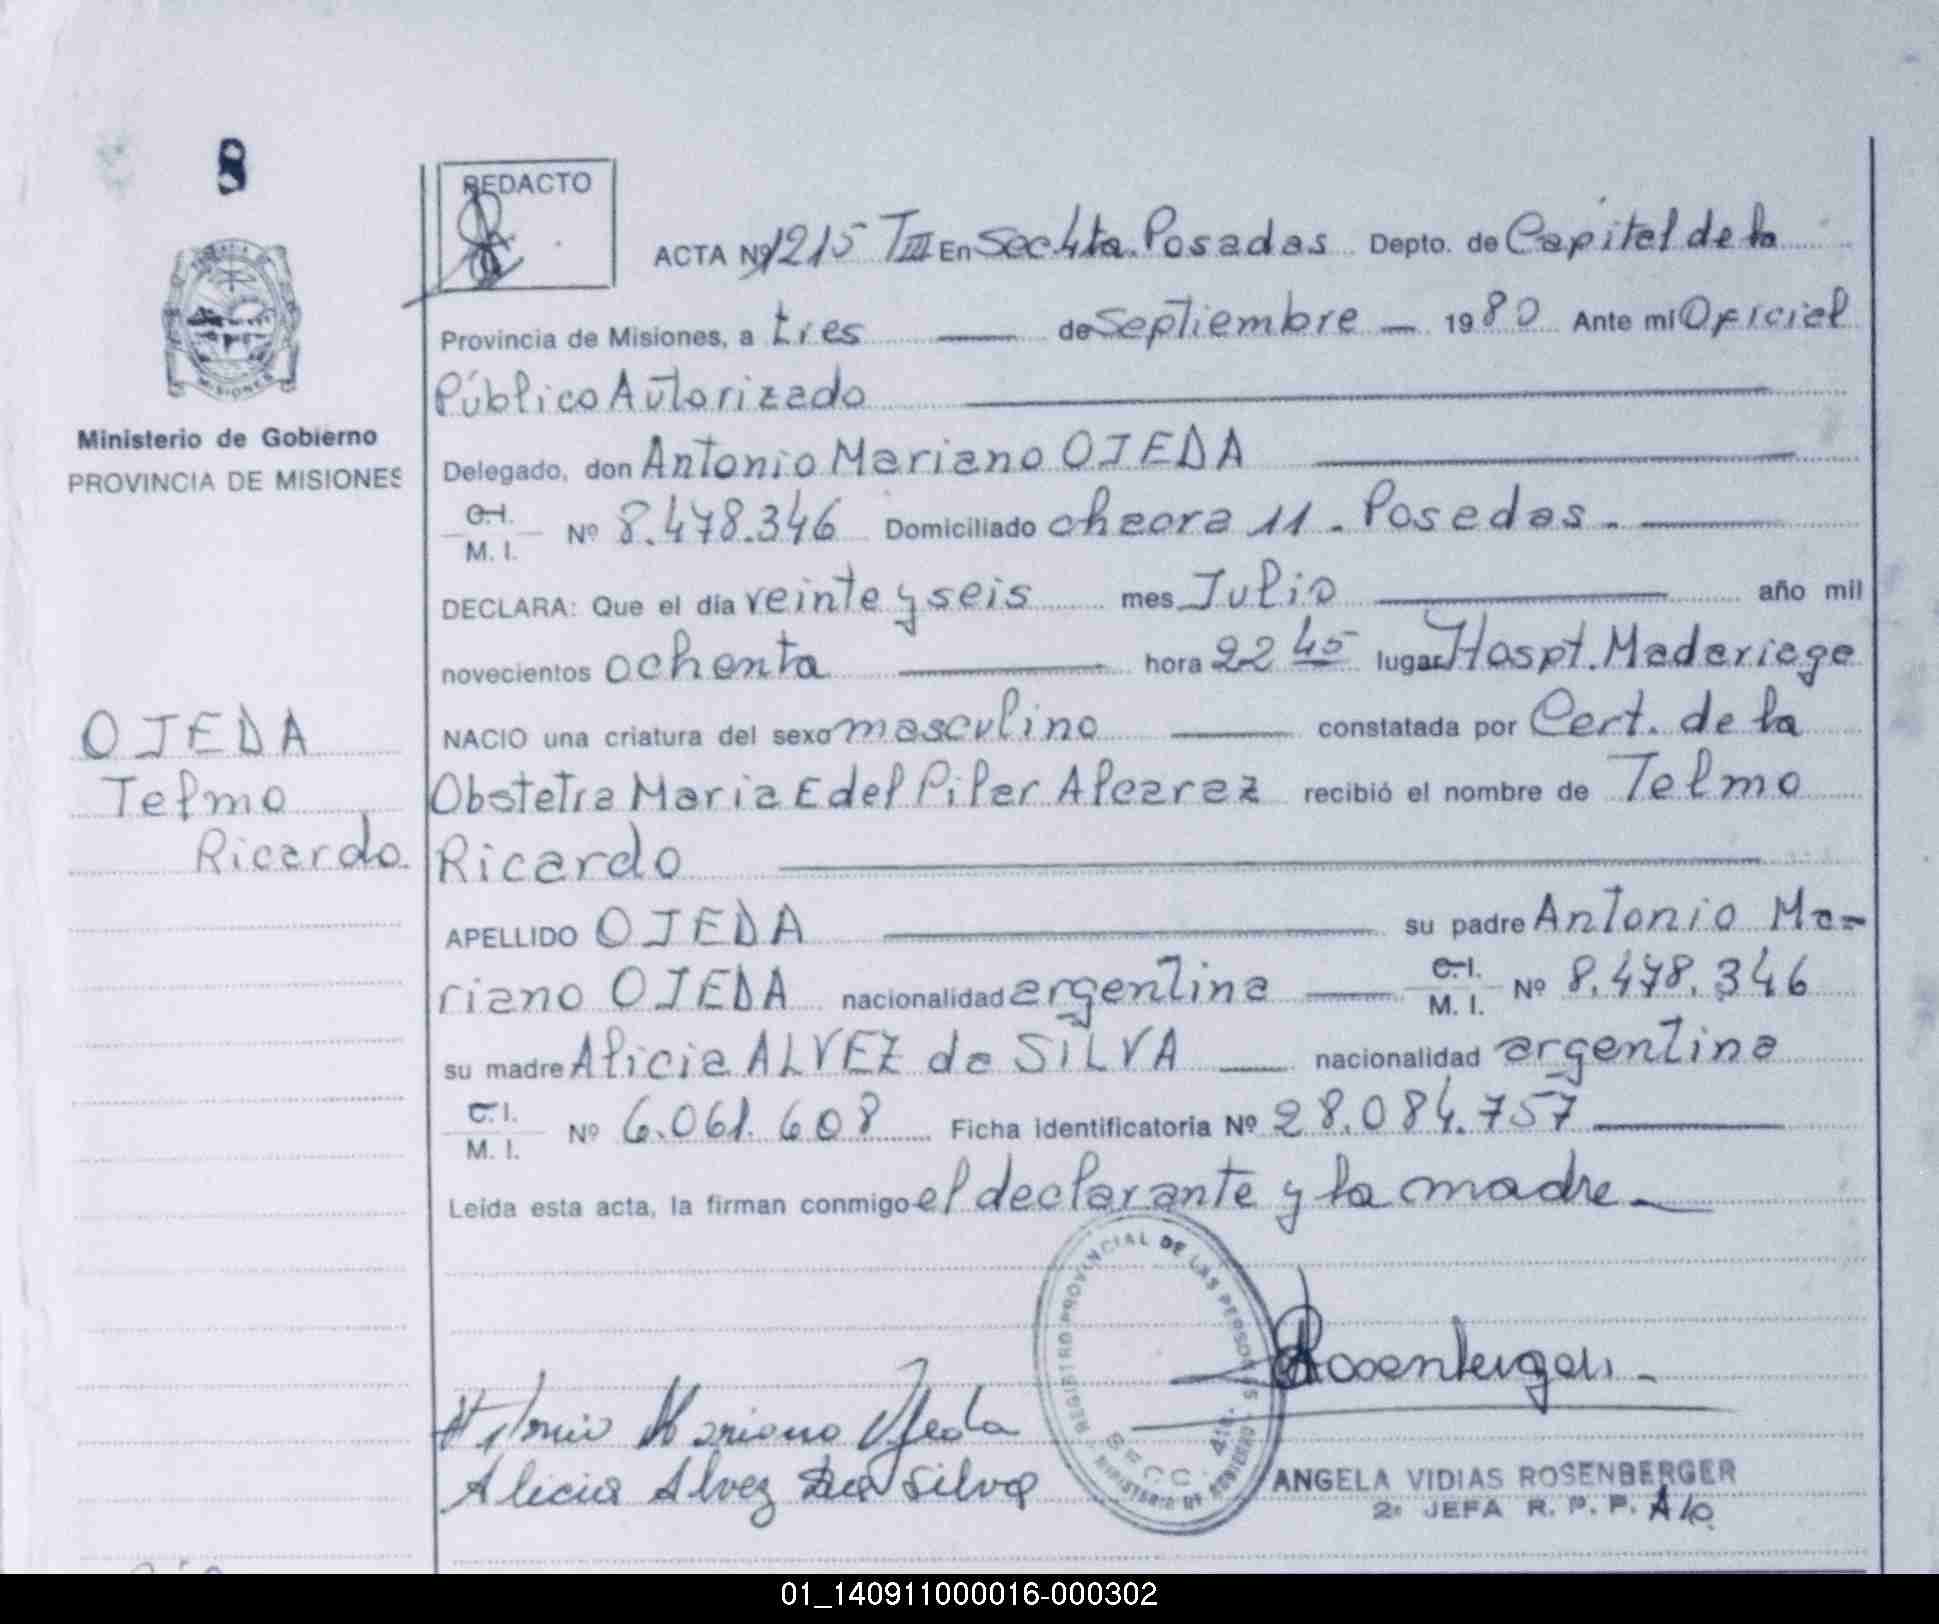 8
REDACTO
ACTA Nº 1215 TIII En Secc 4ta. Posadas Depto. de Capital de la
Provincia de Misiones, a tres de Septiembre 1980 Ante mi Oficial
Público Autorizado
Ministerio de Gobierno
PROVINCIA DE MISIONES
Delegado, don Antonio Mariano OJEDA
C.I.
M. I. Nº 8.478.346 Domiciliado chacra 11. Posadas.
DECLARA: Que el día veinte y seis mes Julio año mil
novecientos ochenta hora 22 45 lugar Hospt. Madariaga
NACIO una criatura del sexo masculino constatada por Cert. de la
Obstetra Maria E del Pilar Alcaraz recibió el nombre de Telmo
Ricardo
OJEDA
Telmo
Ricardo.
APELLIDO OJEDA su padre Antonio Ma-
riano OJEDA nacionalidad argentina C.I.
M. I. Nº 8.478.346
su madre Alicia ALVEZ da SILVA nacionalidad argentina
C.I.
M. I. Nº 6.061.608 Ficha identificatoria Nº 28.084.757
Leída esta acta, la firman conmigo el declarante y la madre
REGISTRO PROVINCIAL DE LAS PERSONAS
MINISTERIO DE GOBIERNO
Rosenberger
Antonio Mariano Ojeda
Alicia Alvez Da Silva
ANGELA VIDIAS ROSENBERGER
2ª JEFA R. P. P. A/c.
01_140911000016-000302